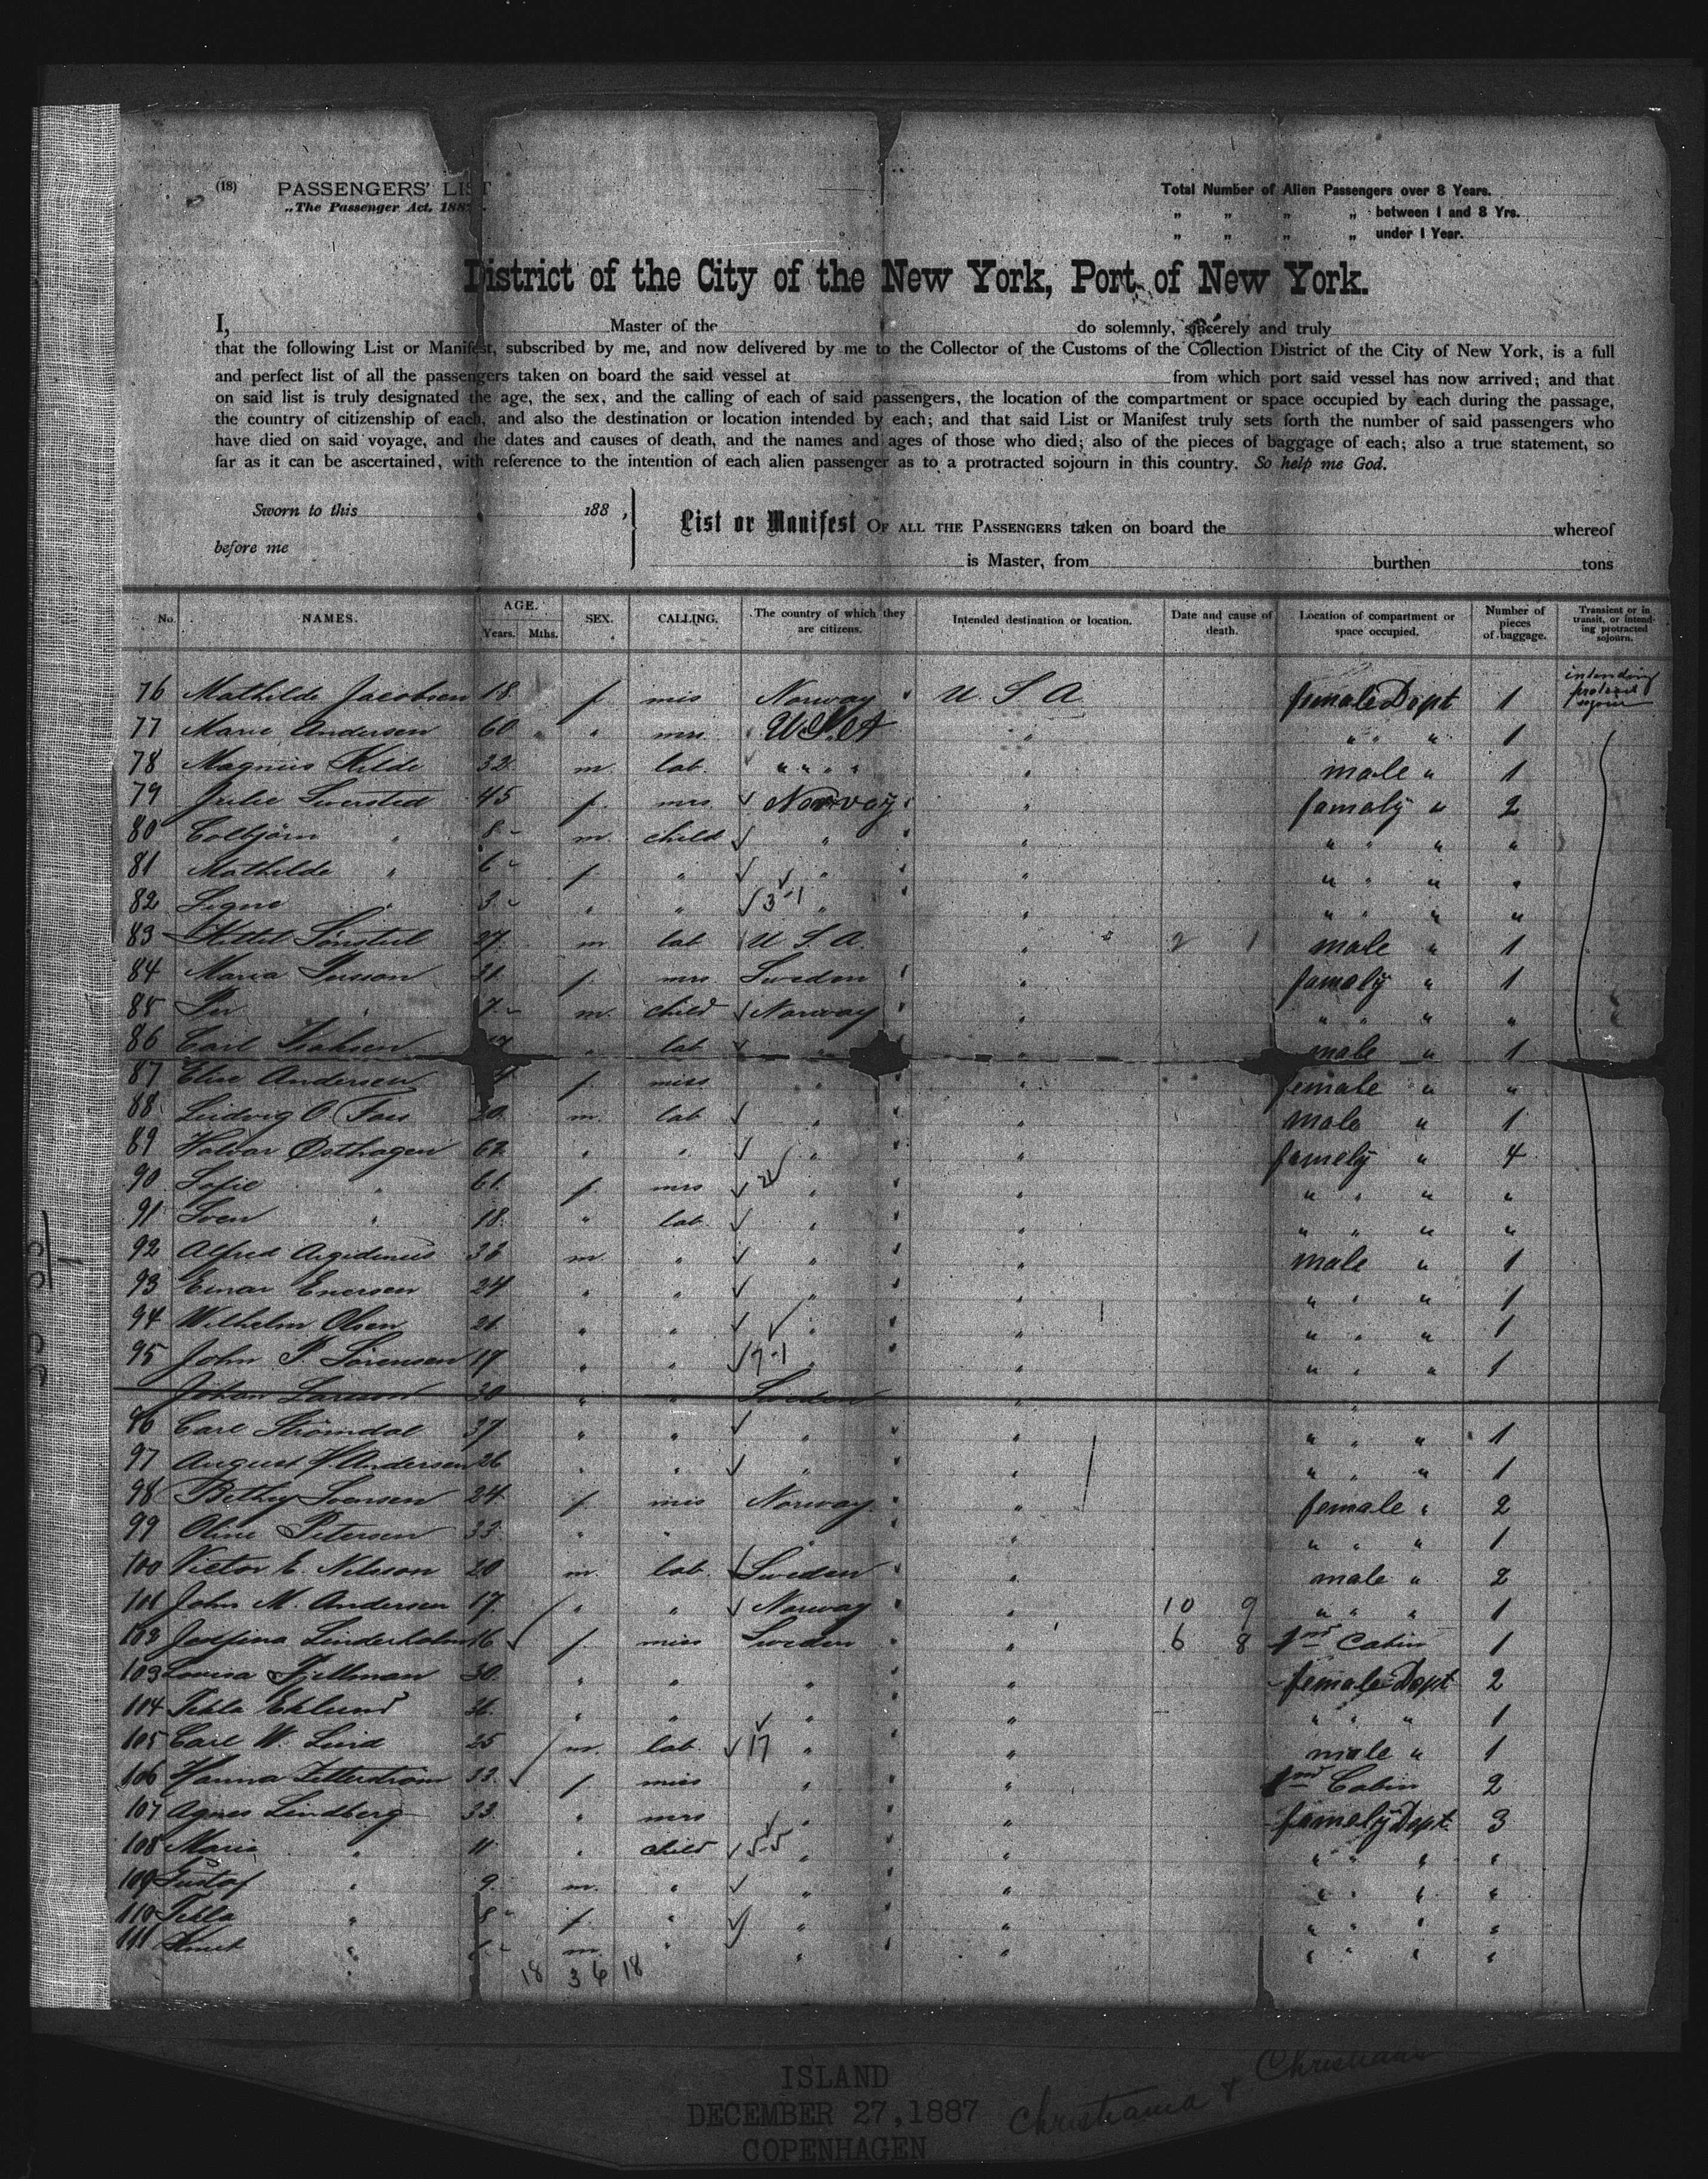 (18) PASSENGERS' LIST
„The Passenger Act. 188
Total Number of Alien Passengers over 8 Years.
„ „ „ „ between 1 and 8 Yrs.
„ „ „ „ under 1 Year.
District of the City of the New York, Port of New York.
I, Master of the do solemnly, sincerely and truly
that the following List or Manifest, subscribed by me, and now delivered by me to the Collector of the Customs of the Collection District of the City of New York, is a full
and perfect list of all the passengers taken on board the said vessel at from which port said vessel has now arrived; and that
on said list is truly designated the age, the sex, and the calling of each of said passengers, the location of the compartment or space occupied by each during the passage,
the country of citizenship of each, and also the destination or location intended by each; and that said List or Manifest truly sets forth the number of said passengers who
have died on said voyage, and the dates and causes of death, and the names and ages of those who died; also of the pieces of baggage of each; also a true statement, so
far as it can be ascertained, with reference to the intention of each alien passenger as to a protracted sojourn in this country. So help me God.
Sworn to this 188 ,
before me
List or Manifest OF ALL THE PASSENGERS taken on board the whereof
is Master, from burthen tons
No. NAMES. AGE. Years. Mths. SEX. CALLING. The country of which they are citizens. Intended destination or location. Date and cause of death. Location of compartment or space occupied. Number of pieces of baggage. Transient or in transit, or intending protracted sojourn.
76 Mathilde Jacobsen 18 f mis Norway U. S A female Dept 1 intending
77 Marie Andersen 60 " mrs U.S.A " " " " 1
78 Magnus Kilde 32 m. lab. " " " " " male " 1
79 Julie 45 f. mrs Norway " famely " 2
80 Colbjörn " 8 m. child " " " " " "
81 Mathilde " 6 f " " " " " " "
82 Signe " 3 " " 3-1 " " " " " "
83 27 m lab U S. A. " 2 1 male " 1
84 Maria Persson 31 f. mrs Sweden " famely " 1
85 Per " 7 m. child Norway " " " " "
86 Carl Isaksen " lab " " male " 1
87 Elise Andersen f. miss " " female " "
88 Ludvig O. 20 m. lab " " male " 1
89 Halvor Østhagen 62 " " " " famely " 4
90 Sofie " 61 f. mrs 2 " " " " " "
91 Sven " 18 " lab. " " " " " "
92 Alfred 33 m. " " " male " 1
93 Einar Enersen 24 " " " " " " " 1
94 Wilhelm Olsen 21 " " " " " " " 1
95 John P. Sörensen 19 " " 7-1 " " " " " 1
Johan Larsson 30 " " Sweden "
96 Carl Strömdal 37 " " " " " " " 1
97 August H. Andersen 26 " " " " " " " 1
98 Bethy Svensen 24 f mis Norway " female " 2
99 Oline Petersen 33 " " " " " " 1
100 Victor E. Nilsson 20 m. lab. Sweden " male " 2
101 John M. Andersen 17 " " Norway " 10 9 " " " 1
102 Josefina Linderholm 16 f. miss Sweden " 6 8 Cabin 1
103 Lovisa Fjellman 30 " " " " female Dept 2
104 Tekla Eklund 36 " " " " " " " 1
105 Carl W. Lind 25 m. lab. 17 " " male " 1
106 Hanna Zetterström 33 f miss " " Cabin 2
107 Agnes Lindberg 33 " mrs " " famely Dept. 3
108 Maria " 11 " child 5-5 " " " " " "
109 Gustaf " 9 m. " " " " " " "
110 Tekla " 8 f. " " " " " " "
111 Knut " m. " " " " " " "
18 3 6 18
ISLAND
DECEMBER 27, 1887
COPENHAGEN
Christiania &